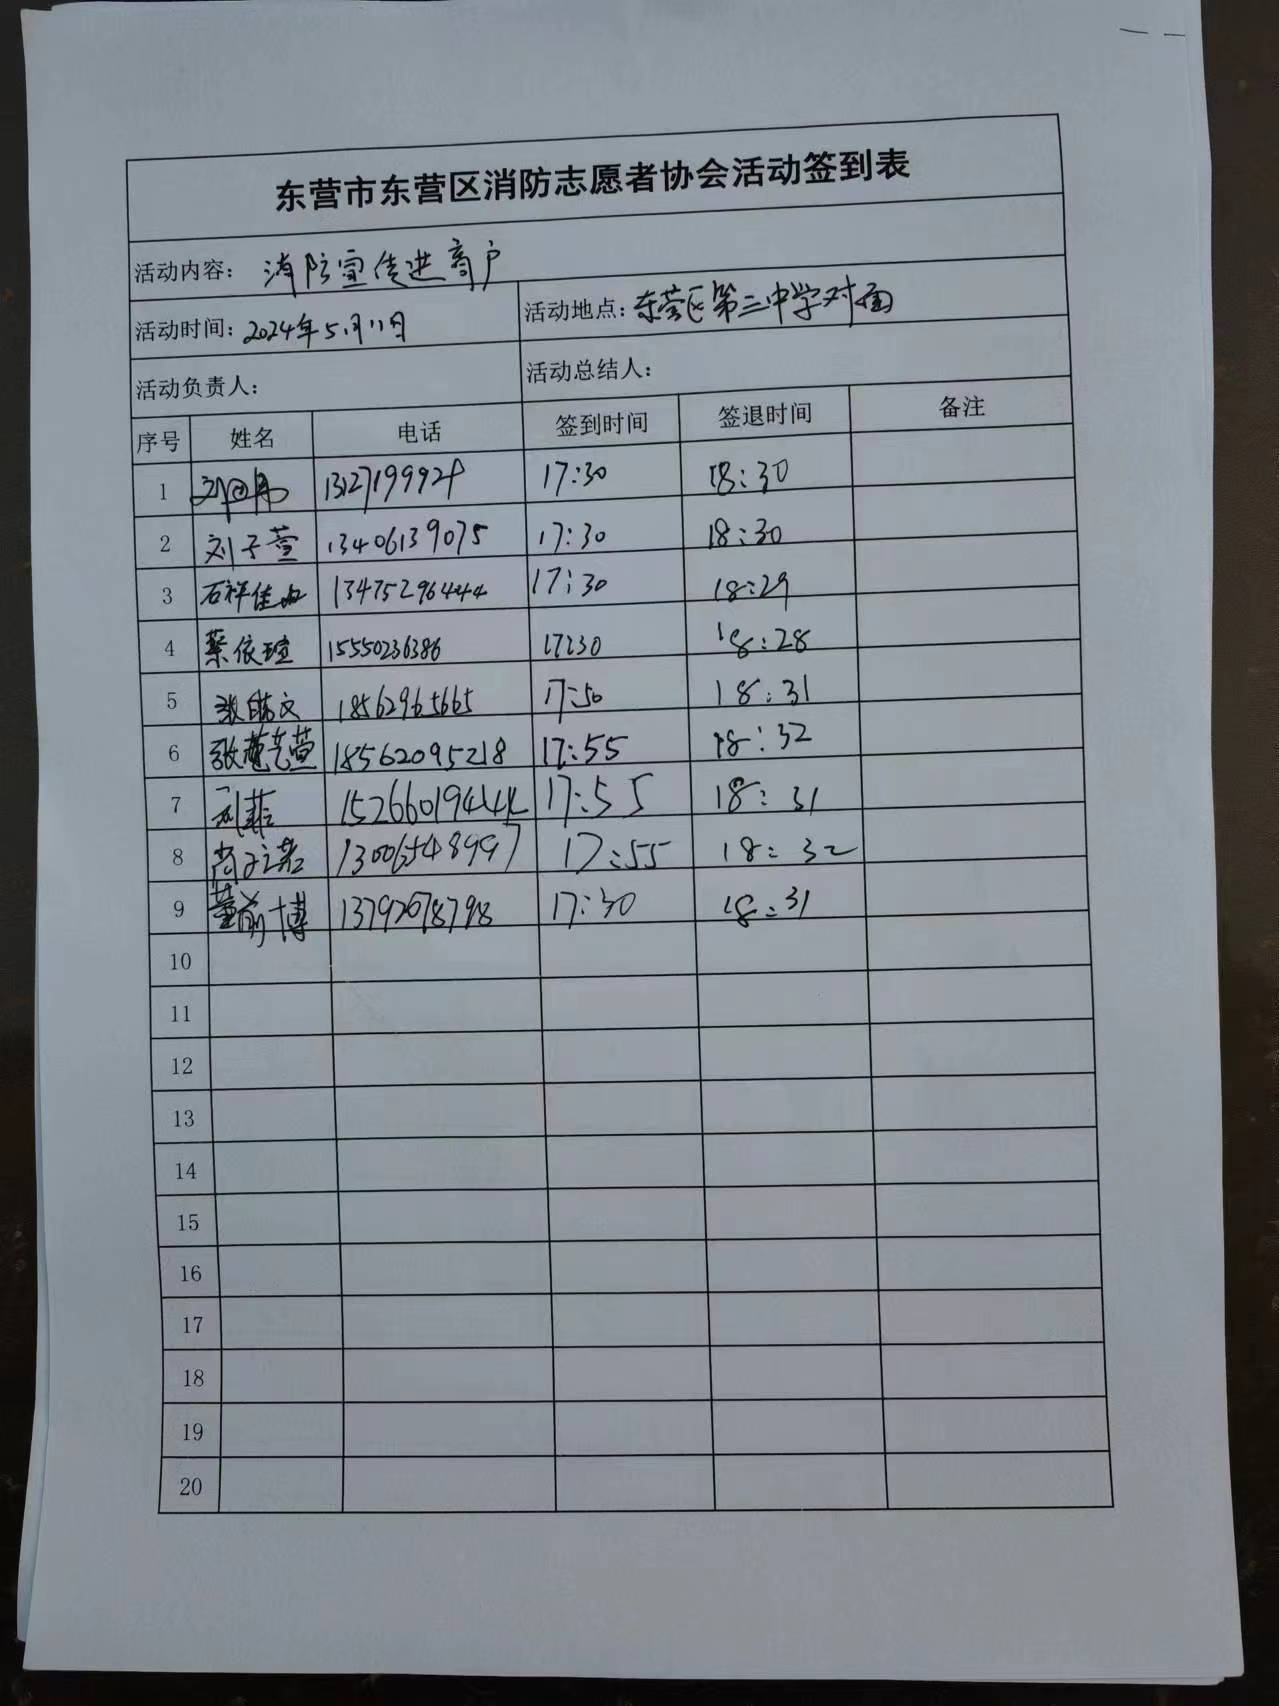 东营市东营区消防志愿者协会活动签到表
活动内容： 消防宣传进商户
活动时间：2024年5月11日 活动地点：东营区第三中学对面
活动负责人： 活动总结人：
序号 姓名 电话 签到时间 签退时间 备注
1 17:30 18:30
2 刘子萱 13406139075 17:30 18:30
3 石祥佳 13475296444 17:30 18:29
4 蔡依瑄 15550236386 17:30 18:28
5 张皓文 18562965665 17:50 18:31
6 张 萱 18562095218 17:55 18:32
7 菲 15266019444 17:55 18:31
8 尚 若 13006548997 17:55 18:32
9 董蔚博 17:30 18:31
10
11
12
13
14
15
16
17
18
19
20